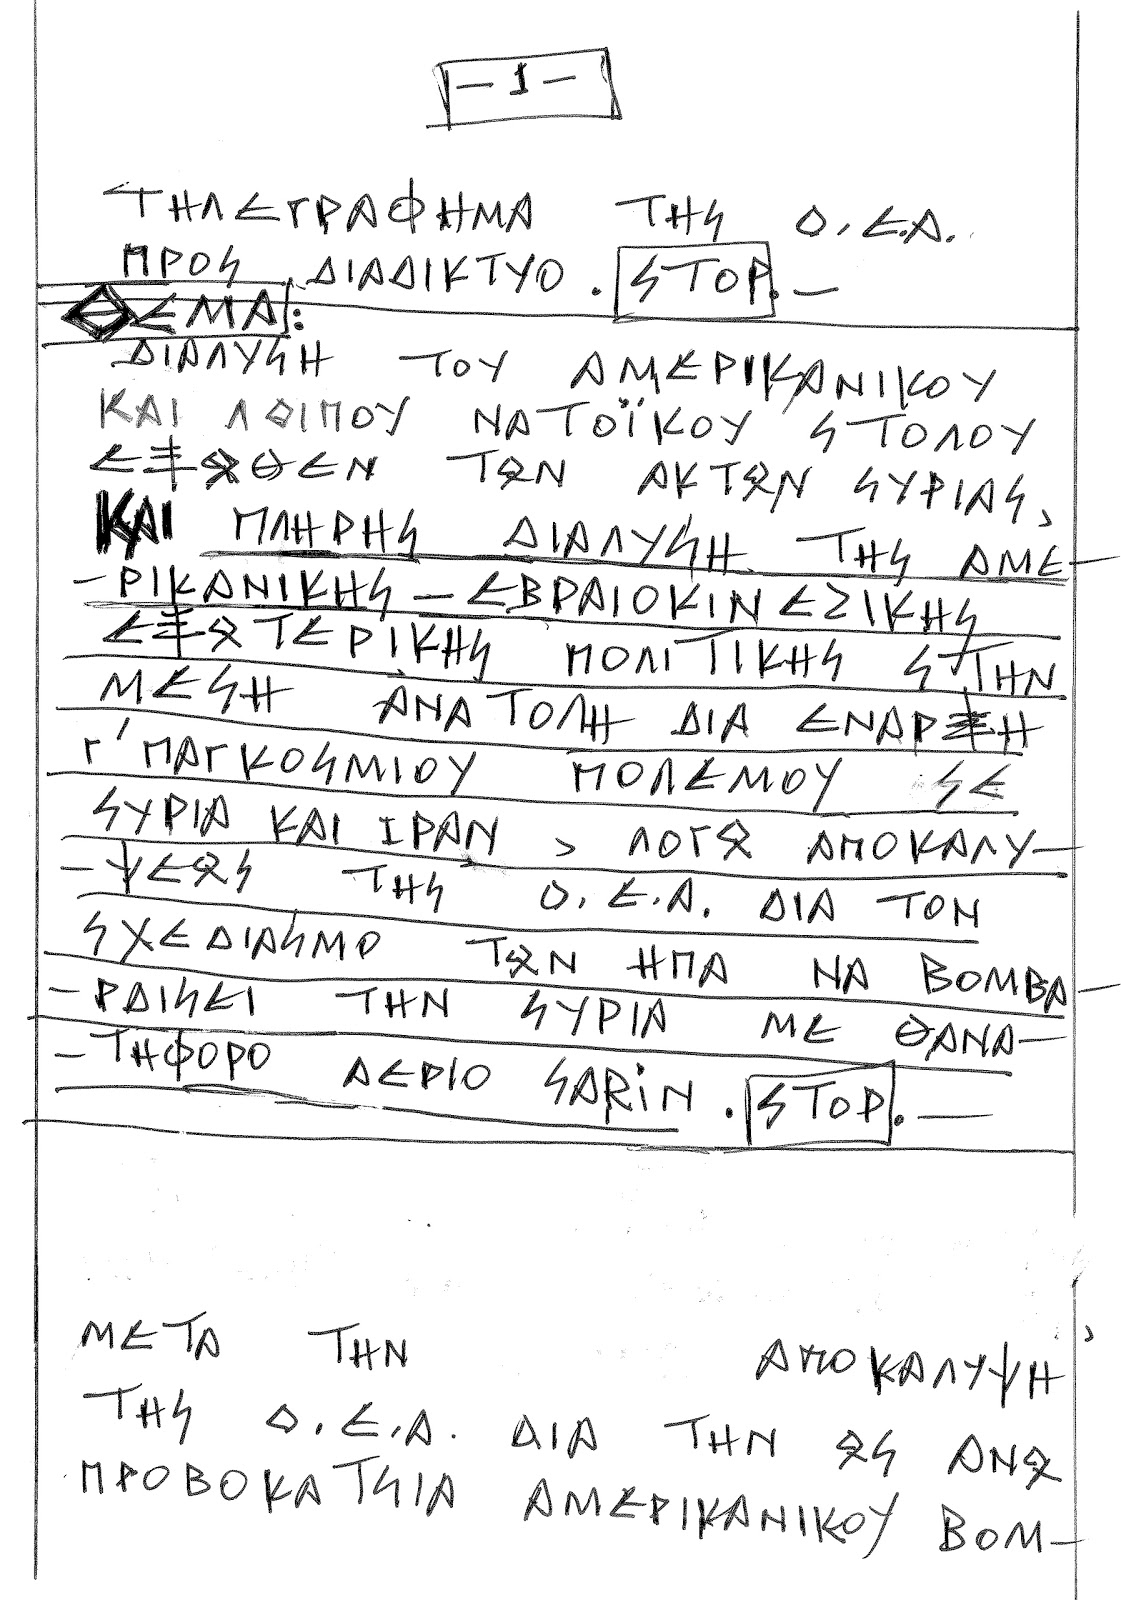 - 1 -
ΤΗΛΕΓΡΑΦΗΜΑ ΤΗΣ Ο.Ε.Α.
ΠΡΟΣ ΔΙΑΔΙΚΤΥΟ. STOP. —
ΘΕΜΑ:
ΔΙΑΛΥΣΗ ΤΟΥ ΑΜΕΡΙΚΑΝΙΚΟΥ
ΚΑΙ ΛΟΙΠΟΥ ΝΑΤΟΪΚΟΥ ΣΤΟΛΟΥ
ΕΞΩΘΕΝ ΤΩΝ ΑΚΤΩΝ ΣΥΡΙΑΣ,
ΚΑΙ ΠΛΗΡΗΣ ΔΙΑΛΥΣΗ ΤΗΣ ΑΜΕ-
-ΡΙΚΑΝΙΚΗΣ - ΕΒΡΑΙΟΚΙΝΕΖΙΚΗΣ
ΕΞΩΤΕΡΙΚΗΣ ΠΟΛΙΤΙΚΗΣ ΣΤΗΝ
ΜΕΣΗ ΑΝΑΤΟΛΗ ΔΙΑ ΕΝΑΡΞΗ
Γ' ΠΑΓΚΟΣΜΙΟΥ ΠΟΛΕΜΟΥ ΣΕ
ΣΥΡΙΑ ΚΑΙ ΙΡΑΝ, ΛΟΓΩ ΑΠΟΚΑΛΥ-
-ΨΕΩΣ ΤΗΣ Ο.Ε.Α. ΔΙΑ ΤΟΝ
ΣΧΕΔΙΑΣΜΟ ΤΩΝ ΗΠΑ ΝΑ ΒΟΜΒΑ-
-ΡΔΙΣΕΙ ΤΗΝ ΣΥΡΙΑ ΜΕ ΘΑΝΑ-
-ΤΗΦΟΡΟ ΑΕΡΙΟ SARiN. STOP. —
ΜΕΤΑ ΤΗΝ ΑΠΟΚΑΛΥΨΗ
ΤΗΣ Ο.Ε.Α. ΔΙΑ ΤΗΝ ΩΣ ΑΝΩ
ΠΡΟΒΟΚΑΤΣΙΑ ΑΜΕΡΙΚΑΝΙΚΟΥ ΒΟΜ-